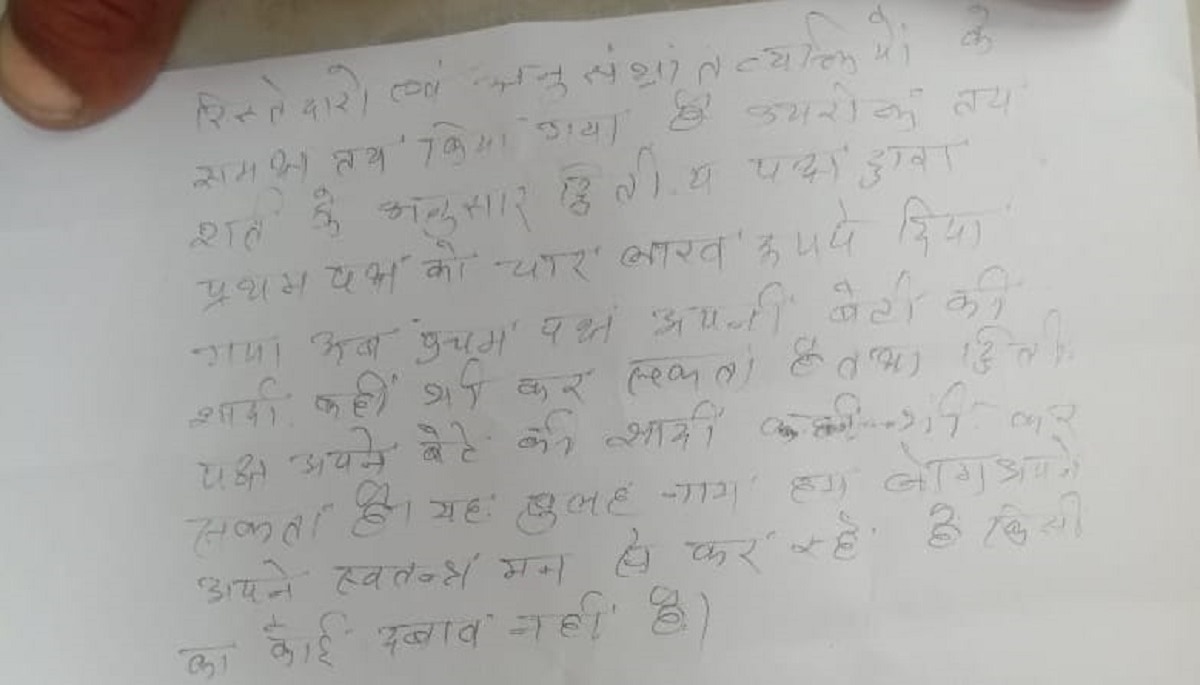 रिस्तेदारो एवं अनु संभ्रांत व्यक्तियों के
समक्ष तय किया गया है उपरोक्त तय
शर्त के अनुसार द्वितीय पक्ष द्वारा
प्रथम पक्ष को चार लाख रुपये दिया
गया अब प्रथम पक्ष अपनी बेटी की
शादी कहीं भी कर सकता है तथा द्विती
पक्ष अपने बेटे की शादी कहीं भी कर
सकता है। यह सुलह नामा हम लोग अपने
अपने स्वतन्त्र मन से कर रहे है किसी
का कोई दबाव नहीं है।